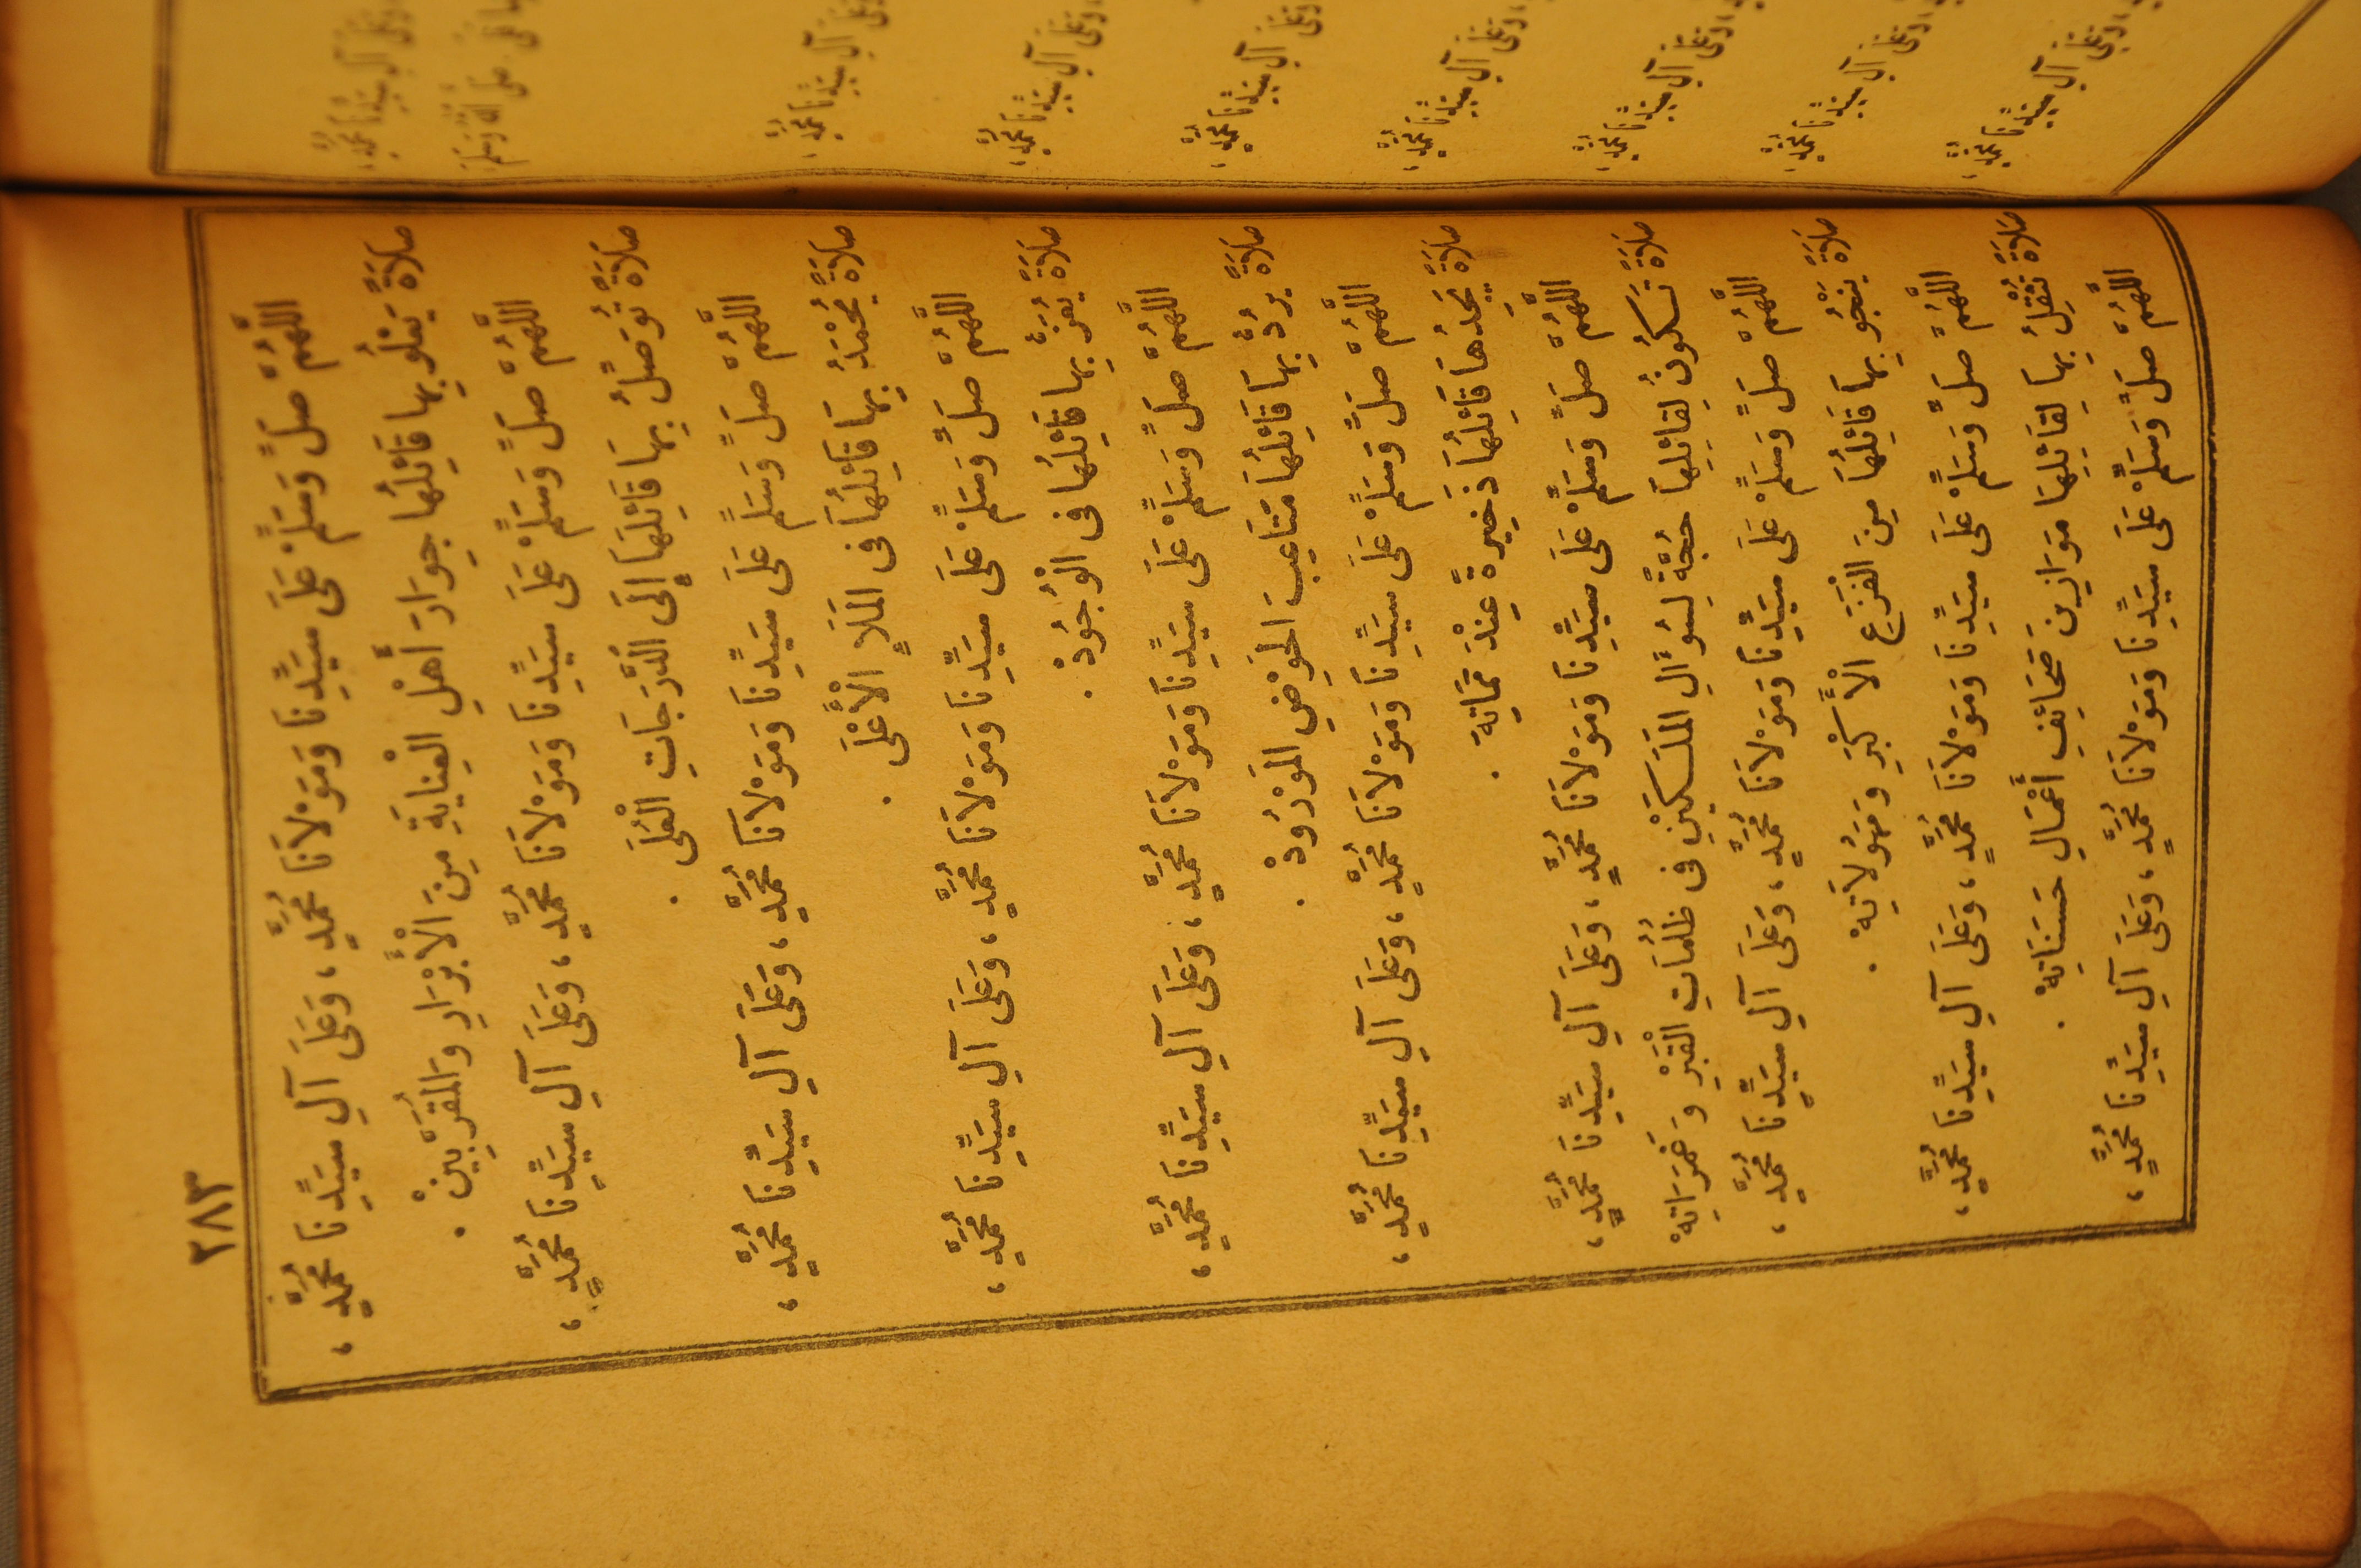 وَعَلَى آلِ سَيِّدِنَا مُحَمَّدٍ،
وَعَلَى آلِ سَيِّدِنَا مُحَمَّدٍ،
وَعَلَى آلِ سَيِّدِنَا مُحَمَّدٍ،
وَعَلَى آلِ سَيِّدِنَا مُحَمَّدٍ،
وَعَلَى آلِ سَيِّدِنَا مُحَمَّدٍ،
وَعَلَى آلِ سَيِّدِنَا مُحَمَّدٍ،
وَعَلَى آلِ سَيِّدِنَا مُحَمَّدٍ،
وَعَلَى آلِ سَيِّدِنَا مُحَمَّدٍ،
٢٨٣
اللَّهُمَّ صَلِّ وَسَلِّمْ عَلَى سَيِّدِنَا وَمَوْلَانَا مُحَمَّدٍ، وَعَلَى آلِ سَيِّدِنَا مُحَمَّدٍ،
صَلَاةً يَعْلُو بِهَا قَائِلُهَا جِوَارَ أَهْلِ الْعِنَايَةِ مِنَ الْأَبْرَارِ وَالْمُقَرَّبِينْ .
اللَّهُمَّ صَلِّ وَسَلِّمْ عَلَى سَيِّدِنَا وَمَوْلَانَا مُحَمَّدٍ، وَعَلَى آلِ سَيِّدِنَا مُحَمَّدٍ،
صَلَاةً تُوَصِّلُ بِهَا قَائِلَهَا إِلَى الدَّرَجَاتِ الْعُلَى .
اللَّهُمَّ صَلِّ وَسَلِّمْ عَلَى سَيِّدِنَا وَمَوْلَانَا مُحَمَّدٍ، وَعَلَى آلِ سَيِّدِنَا مُحَمَّدٍ،
صَلَاةً يُحْمَدُ بِهَا قَائِلُهَا فِى الْمَلَإِ الْأَعْلَى .
اللَّهُمَّ صَلِّ وَسَلِّمْ عَلَى سَيِّدِنَا وَمَوْلَانَا مُحَمَّدٍ، وَعَلَى آلِ سَيِّدِنَا مُحَمَّدٍ،
صَلَاةً يُعَزُّ بِهَا قَائِلُهَا فِى الْوُجُودْ .
اللَّهُمَّ صَلِّ وَسَلِّمْ عَلَى سَيِّدِنَا وَمَوْلَانَا مُحَمَّدٍ، وَعَلَى آلِ سَيِّدِنَا مُحَمَّدٍ،
صَلَاةً يَرُدُّ بِهَا قَائِلُهَا مَتَاعِبَ الْحَوْضِ الْمَوْرُودْ .
اللَّهُمَّ صَلِّ وَسَلِّمْ عَلَى سَيِّدِنَا وَمَوْلَانَا مُحَمَّدٍ، وَعَلَى آلِ سَيِّدِنَا مُحَمَّدٍ،
صَلَاةً يَجِدُهَا قَائِلُهَا ذَخِيرَةً عِنْدَ مَمَاتِهْ .
اللَّهُمَّ صَلِّ وَسَلِّمْ عَلَى سَيِّدِنَا وَمَوْلَانَا مُحَمَّدٍ، وَعَلَى آلِ سَيِّدِنَا مُحَمَّدٍ،
صَلَاةً تَكُونُ لِقَائِلِهَا حُجَّةً لِسُؤَالِ الْمَلَكَيْنِ فِى ظُلُمَاتِ الْقَبْرِ وَغَمَرَاتِهْ
اللَّهُمَّ صَلِّ وَسَلِّمْ عَلَى سَيِّدِنَا وَمَوْلَانَا مُحَمَّدٍ، وَعَلَى آلِ سَيِّدِنَا مُحَمَّدٍ،
صَلَاةً يَنْجُو بِهَا قَائِلُهَا مِنَ الْفَزَعِ الْأَكْبَرِ وَمَهُولَاتِهْ .
اللَّهُمَّ صَلِّ وَسَلِّمْ عَلَى سَيِّدِنَا وَمَوْلَانَا مُحَمَّدٍ، وَعَلَى آلِ سَيِّدِنَا مُحَمَّدٍ،
صَلَاةً تُثْقِلُ بِهَا لِقَائِلِهَا مَوَازِينَ صَحَائِفِ أَعْمَالِ حَسَنَاتِهْ .
اللَّهُمَّ صَلِّ وَسَلِّمْ عَلَى سَيِّدِنَا وَمَوْلَانَا مُحَمَّدٍ، وَعَلَى آلِ سَيِّدِنَا مُحَمَّدٍ،